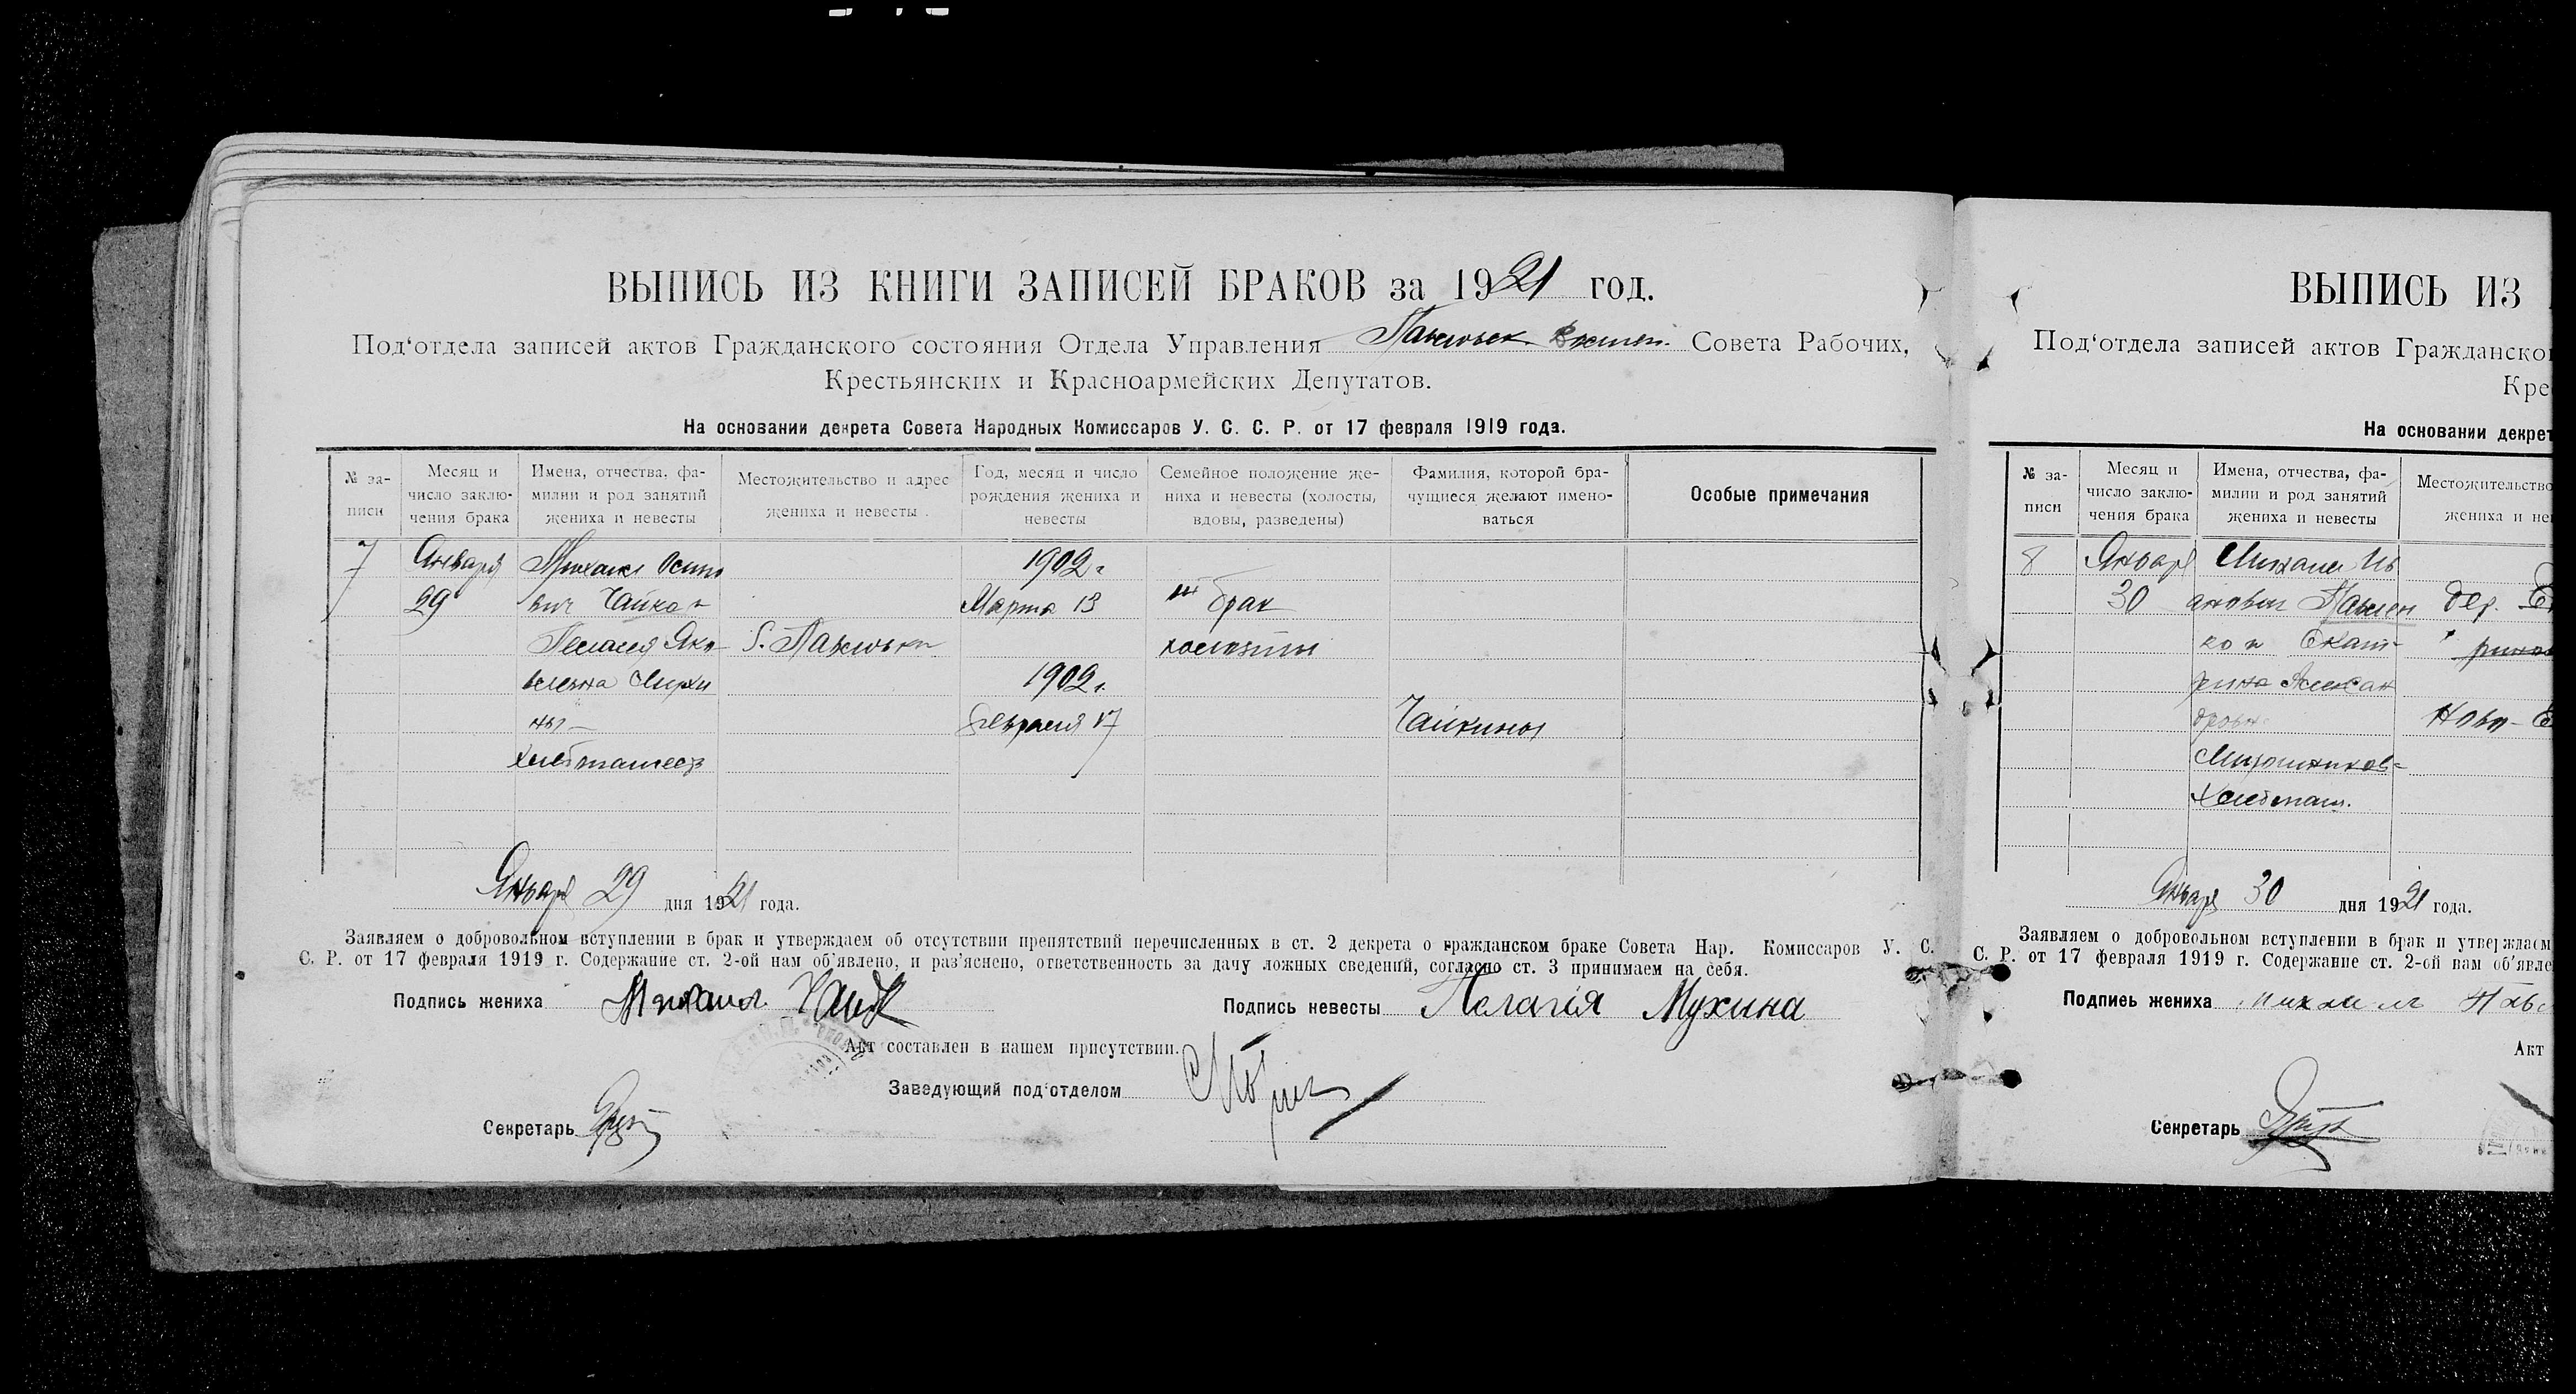 ВЫПИСЬ ИЗ КНИГИ ЗАПИСЕЙ БРАКОВ за 1921 год.
Под'отдела записей актов Гражданского состояния Отдела Управления Совета Рабочих,
Крестьянских и Красноармейских Депутатов.
На основании декрета Совета Народных Комиссаров У. С. С. Р. от 17 февраля 1919 года.
№ за-писи
Месяц и число заклю-чения брака
Имена, отчества, фа-милии и род занятий жениха и невесты
Местожительство и адрес жениха и невесты.
Год, месяц и число рождения жениха и невесты
Семейное положение же-ниха и невесты (холосты, вдовы, разведены)
Фамилия, которой бра-чущиеся желают имено-ваться
Особые примечания
7 Января Михаил Осипо 1902 г.
29 вич Чайка и Марта 13 брак
Пелагея Яко холосты
влевна 1902 г.
Февраля 17 Чайкины
Января 29 дня 1921 года.
Заявляем о добровольном вступлении в брак и утверждаем об отсутствии препятствий перечисленных в ст. 2 декрета о гражданском браке Совета Нар. Комиссаров У. С.
С. Р. от 17 февраля 1919 г. Содержание ст. 2-ой нам об'явлено, и раз'яснено, ответственность за дачу ложных сведений, согласно ст. 3 принимаем на себя.
Подпись жениха Михаил Чайк
Подпись невесты Пелагія Мухина
Акт составлен в нашем присутствии.
Заведующий под'отделом
Секретарь
ВЫПИСЬ ИЗ
Под'отдела записей актов Гражданско
Кре
На основании декрет
№ за-писи
Месяц и число заклю-чения брака
Имена, отчества, фа-милии и род занятий жениха и невесты
Местожительство
жениха и не
8 Январ Михаил Ив
30 анович Павлен дер.
ко и Екат-
рина Алексан
дровн Ново-
Мирошников-
Хлебопаш.
Января 30 дня 1921 года.
Заявляем о добровольном вступлении в брак и утверждаем
С. Р. от 17 февраля 1919 г. Содержание ст. 2-ой нам об'явле
Подпись жениха Михаил Павл
Акт
Секретарь